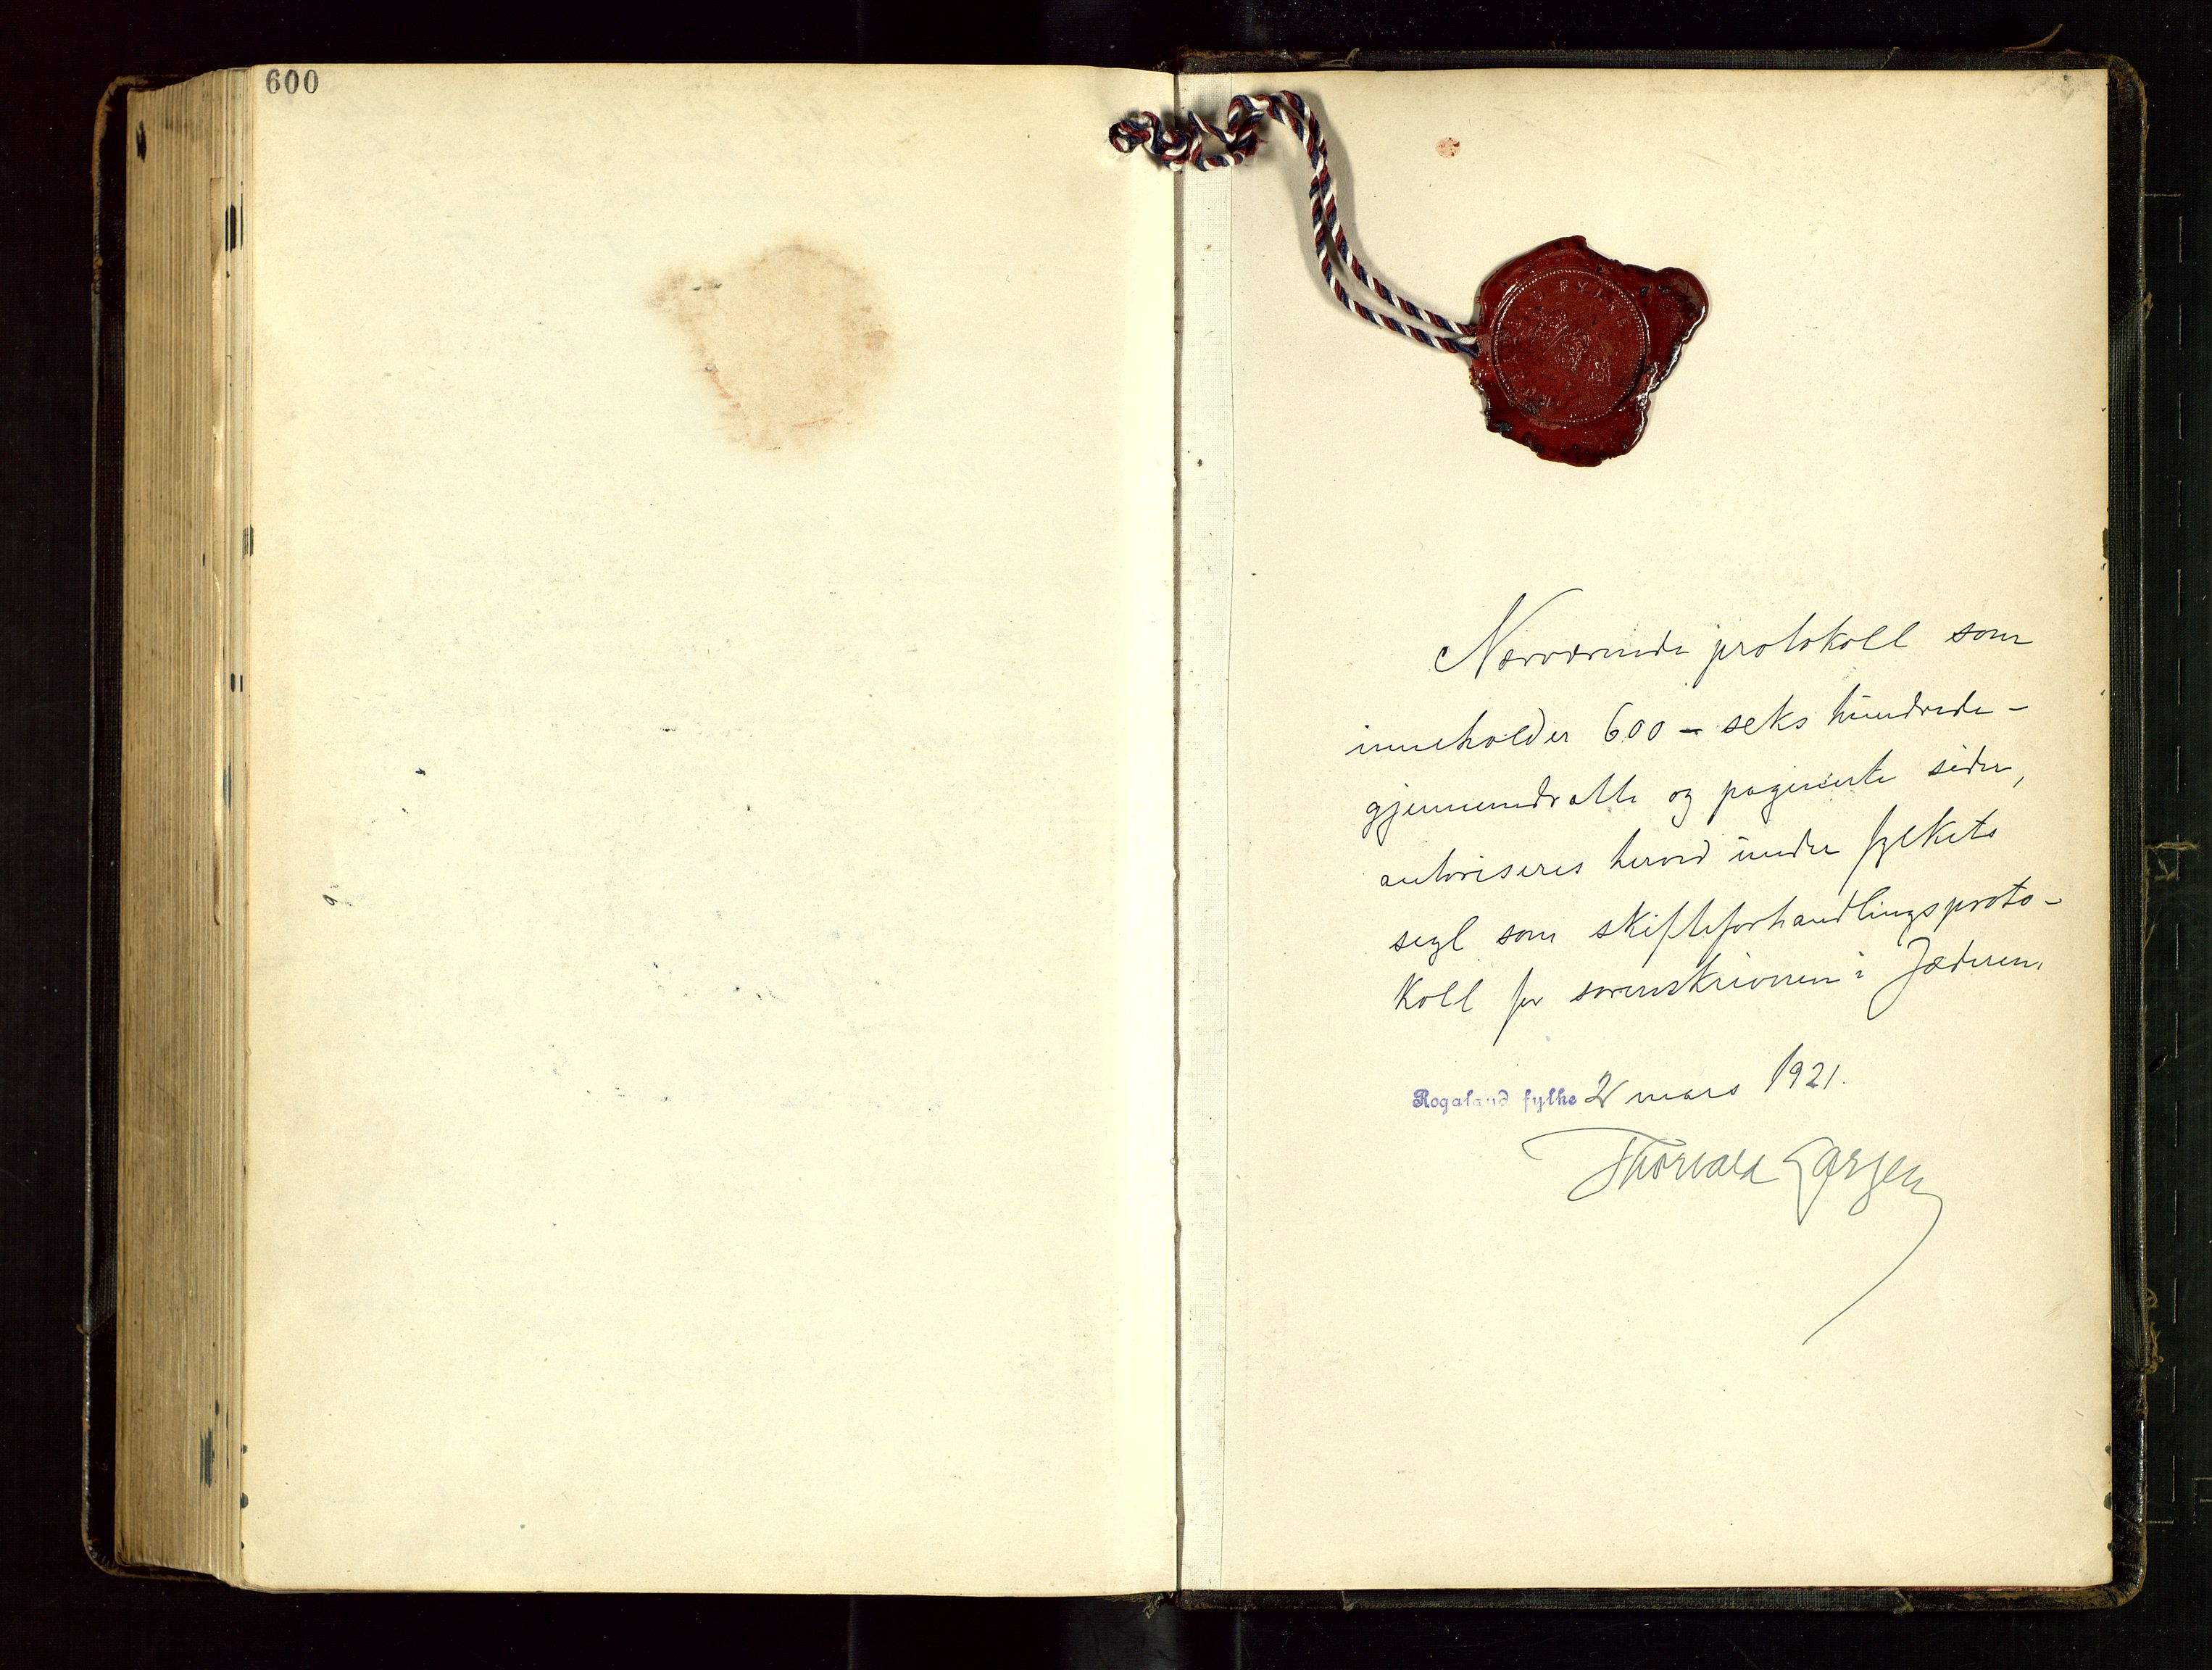 600
ROGALAND FYLKE
Nærværende protokoll som
inneholder 600 - seks hundrede -
gjennemdratte og paginerte sider,
autoriseres herved under fylkets
segl som skifteforhandlingsproto-
koll for sorenskriveren i Jæderen.
Rogaland fylke 2 mars 1921.
Thorvald Larsen